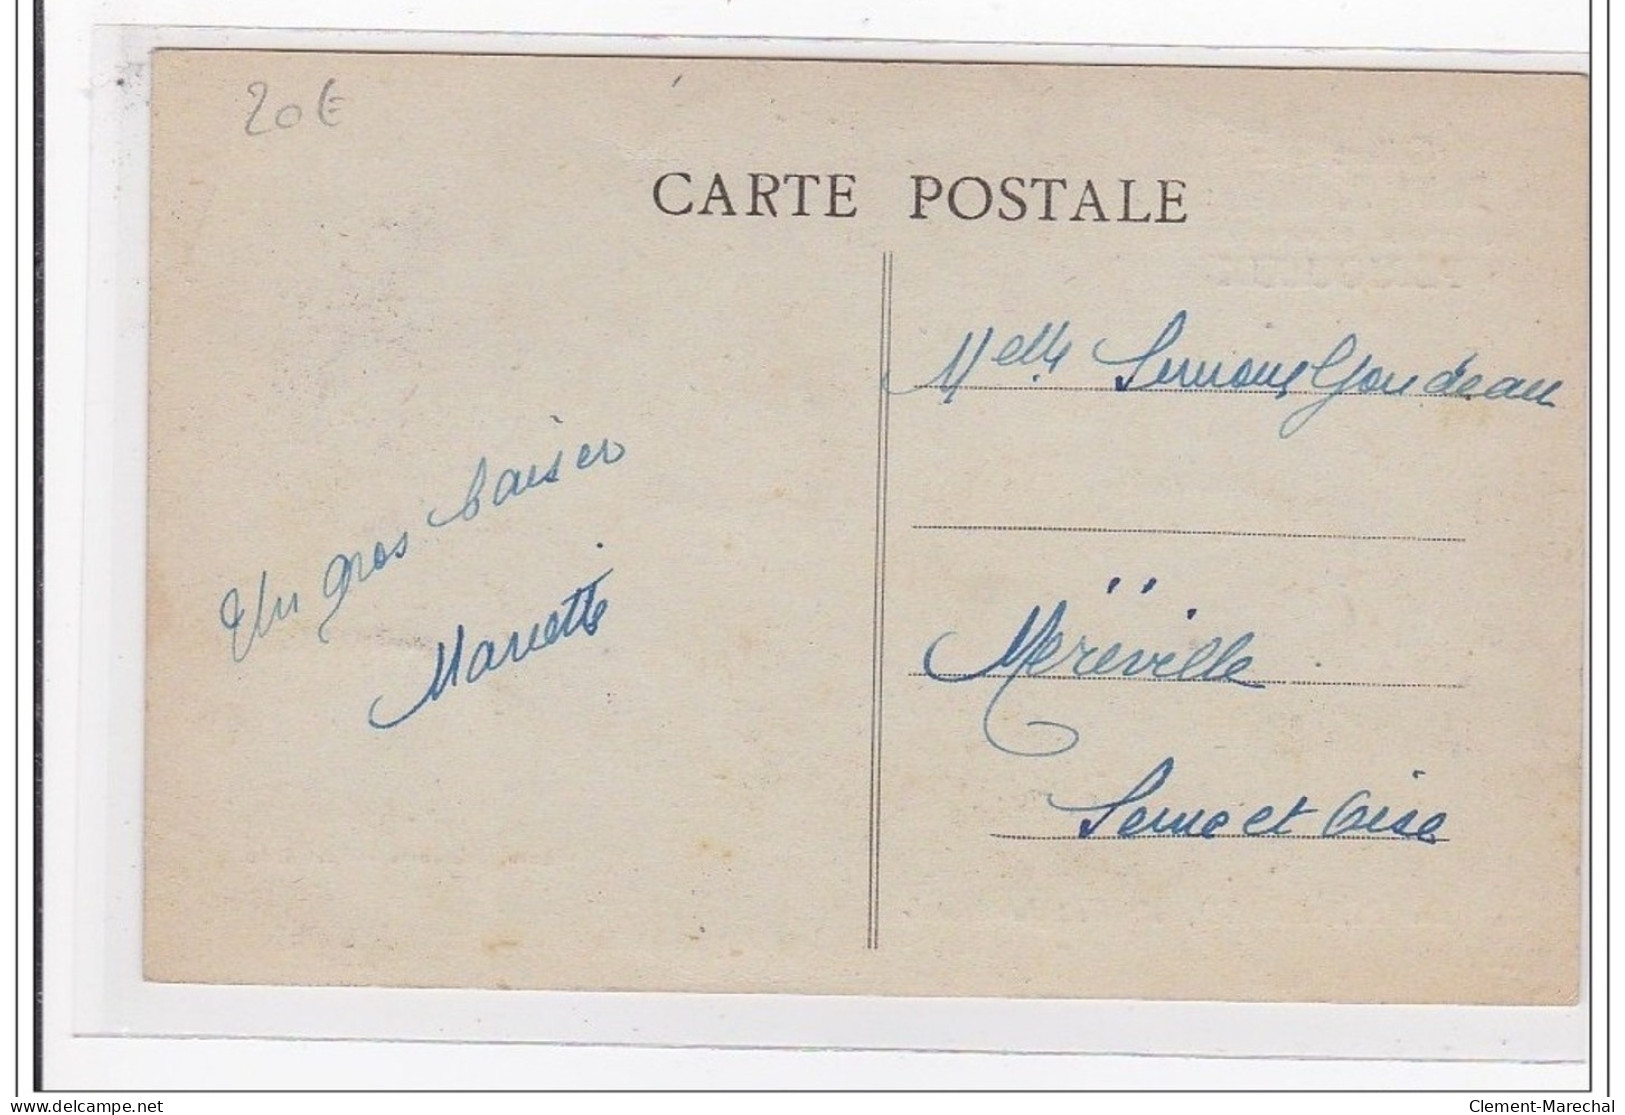 20€
CARTE POSTALE
Melle Simone Goudeau
Un gros baiser
Mariette
Méréville
Seine et Oise
delcampe.net
Clement-Marechal